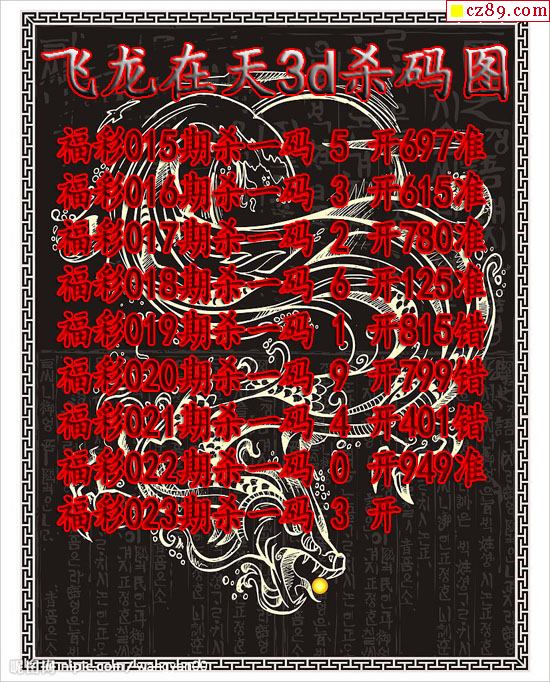 cz89.com
飞龙在天3d杀码图
福彩015期杀一码 5 开697准
福彩016期杀一码 3 开615准
福彩017期杀一码 2 开780准
福彩018期杀一码 6 开125准
福彩019期杀一码 1 开815错
福彩020期杀一码 9 开799错
福彩021期杀一码 4 开401错
福彩022期杀一码 0 开949准
福彩023期杀一码 3 开